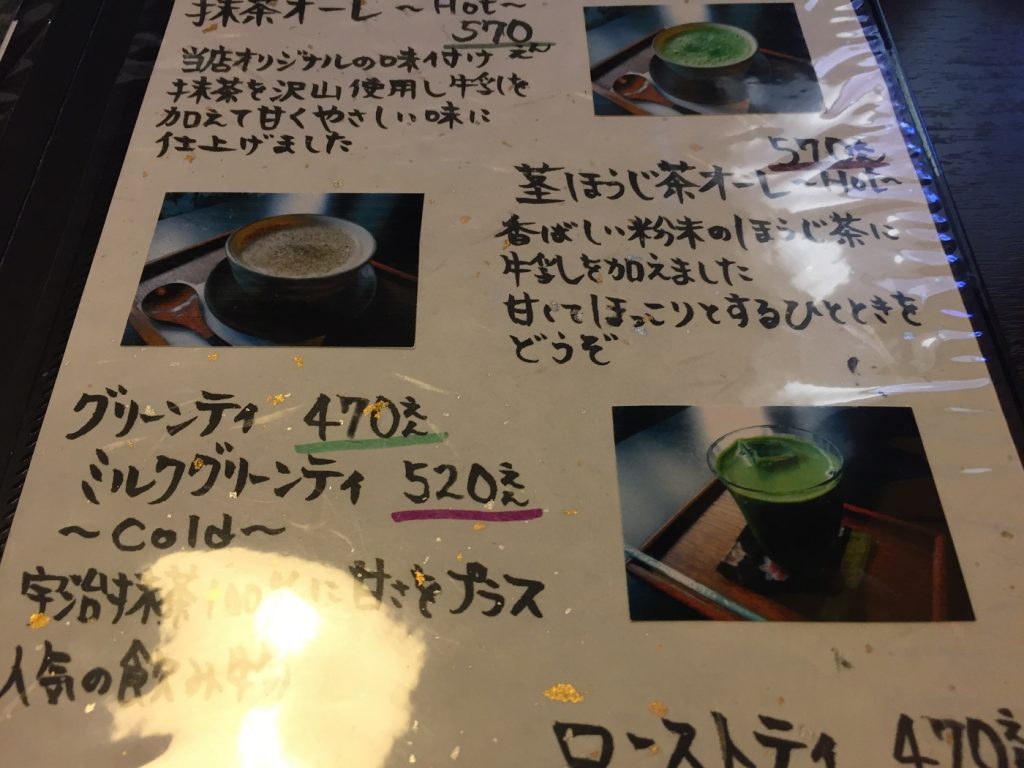 抹茶オーレ ～Hot～
570えん
当店オリジナルの味付け
抹茶を沢山使用し牛乳を
加えて甘くやさしい味に
仕上げました
570えん
茎ほうじ茶オーレ～Hot～
香ばしい粉末のほうじ茶に
牛乳を加えました
甘くてほっこりとするひとときを
どうぞ
グリーンティ 470えん
ミルクグリーンティ 520えん
～Cold～
宇治抹茶100%に甘さをプラス
人気の飲み物
ローストティ 470えん